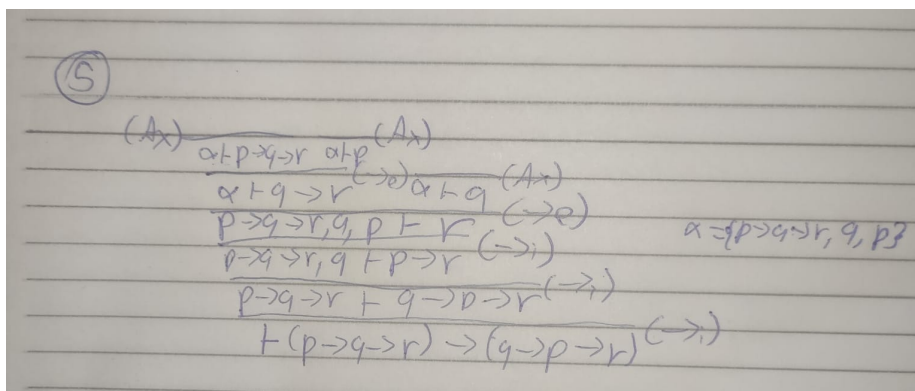 5
(Ax) (Ax)
α⊢p→q→r α⊢p
α⊢q→r (→e) α⊢q (Ax)
p→q→r, q, p ⊢ r (→e)
α={p→q→r, q, p}
p→q→r, q ⊢ p→r (→i)
p→q→r ⊢ q→p→r (→i)
⊢(p→q→r)→(q→p→r) (→i)